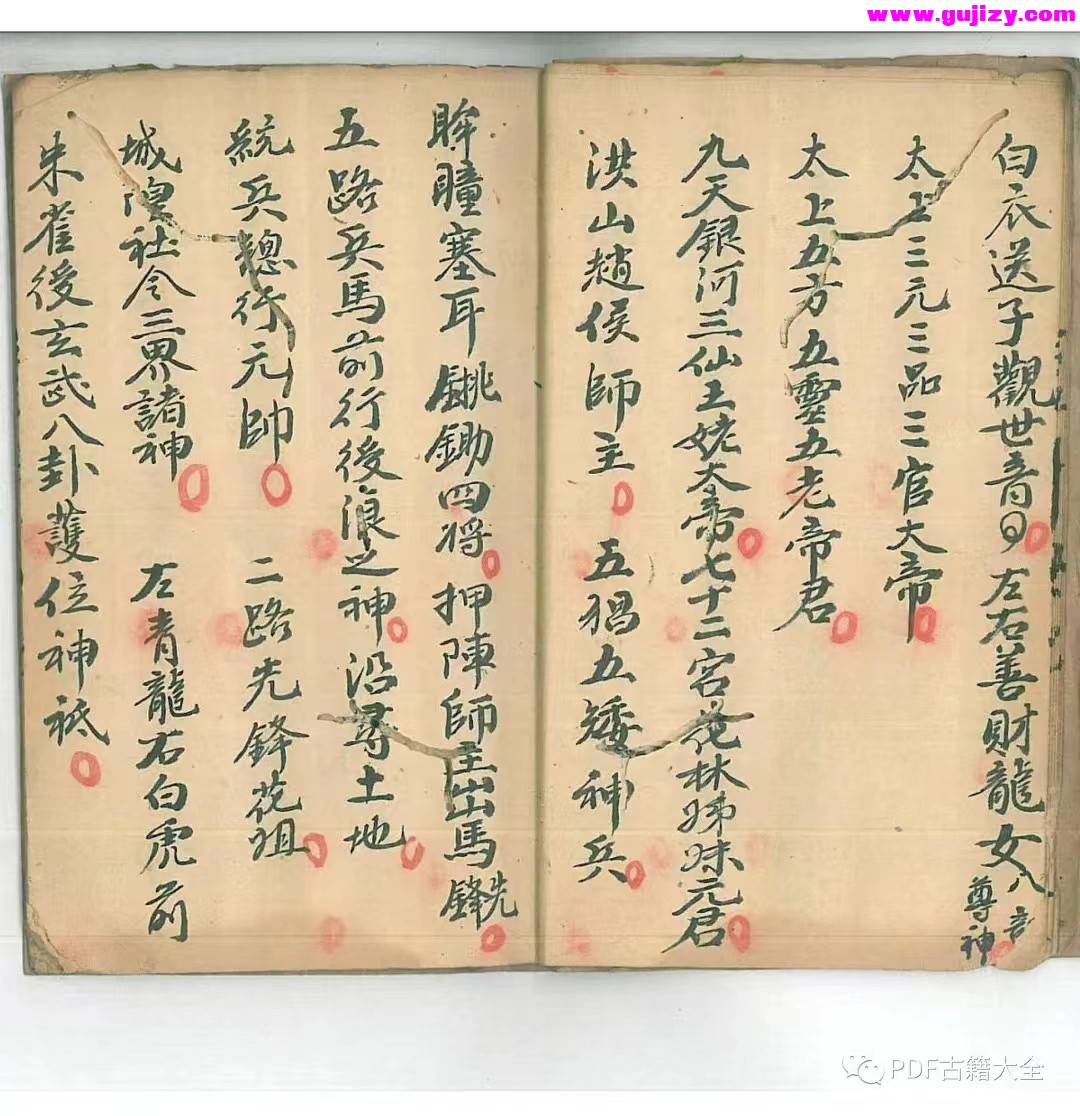 www.gujizy.com
白衣送子觀世音 左右善財龍女八 尊神
太上三元三品三官大帝
太上五方五靈五老帝君
九天銀河三仙王姥大帝七十二宮花林姊妹元君
洪山趙侯師主 五猖五矮神兵
眸瞳塞耳銚鋤四將押陣師主出馬先鋒
五路兵馬前行後浪之神沿尋土地
統兵總行元帥 二路先鋒花姐
城隍社令三界諸神 左青龍右白虎前
朱雀後玄武八卦護位神祇
PDF古籍大全